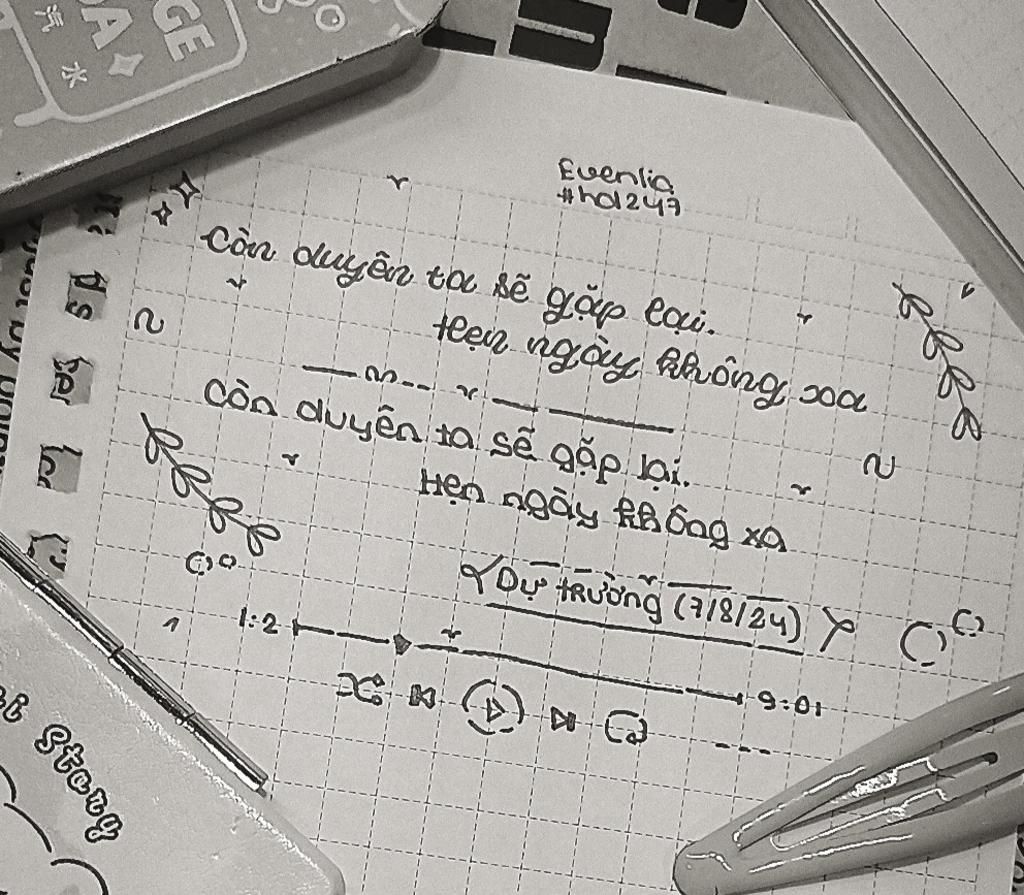 GE
DA
汽
水
Evenlia
#hd1247
Còn duyên ta sẽ gặp lại.
Hẹn ngày không xa
Còn duyên ta sẽ gặp lại.
Hẹn ngày không xa
Dự trường (7/8/24)
1:2
9:01
Story